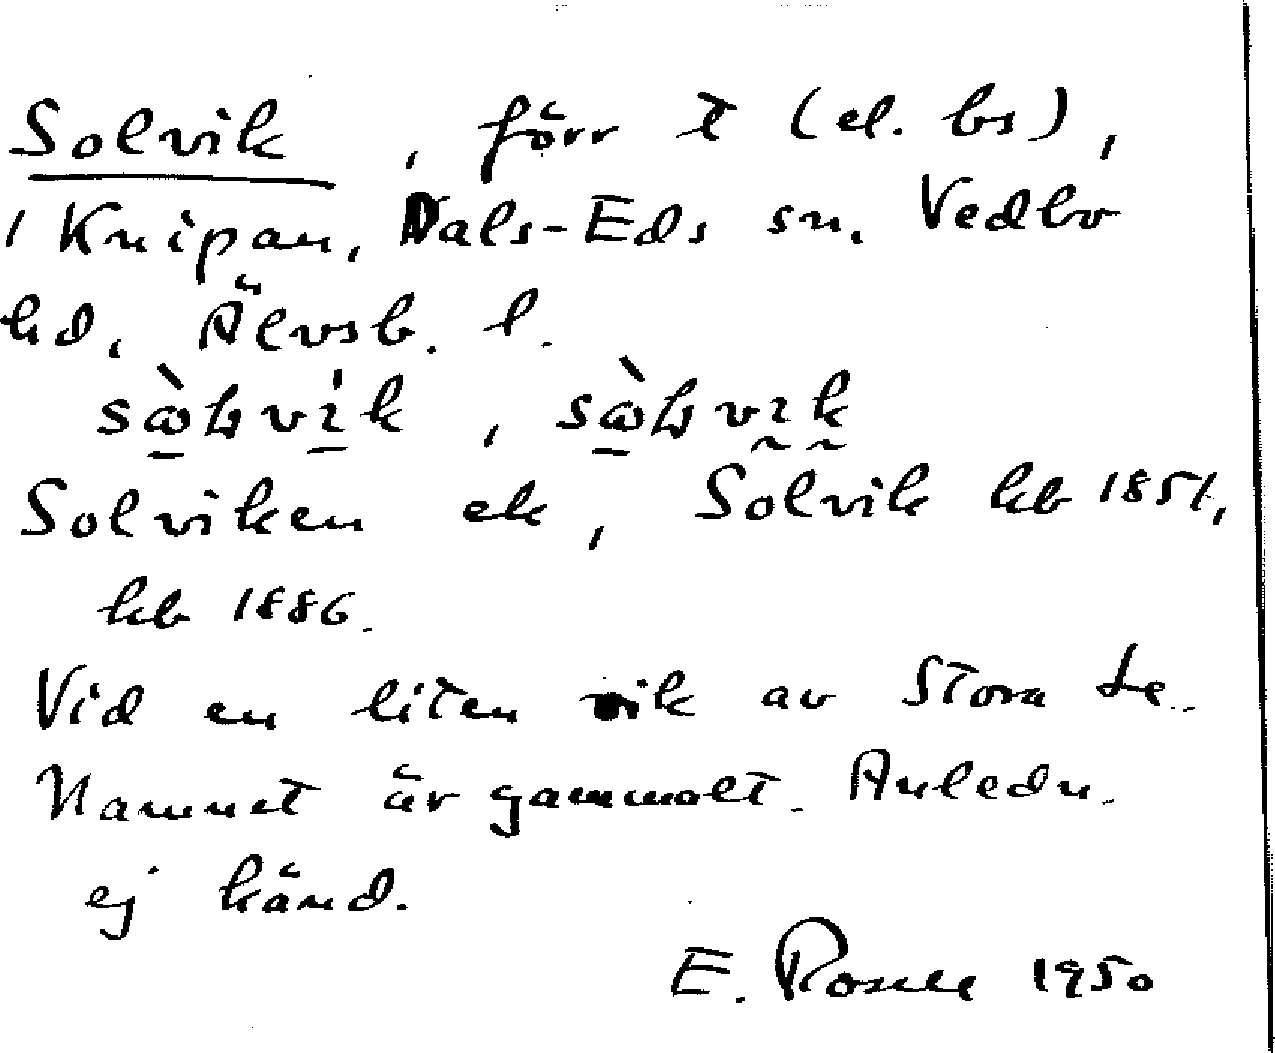 Solvik, förr t (el. bs),
i Knipan, Dals-Eds sn. Vedbo
hd, Älvsb. l.
Solviken ek, Solvik kb 1851,
kb 1886.
Vid en liten vik av Stora Le.
Namnet är gammalt. Anledn.
ej känd.
E. Rosell 1950